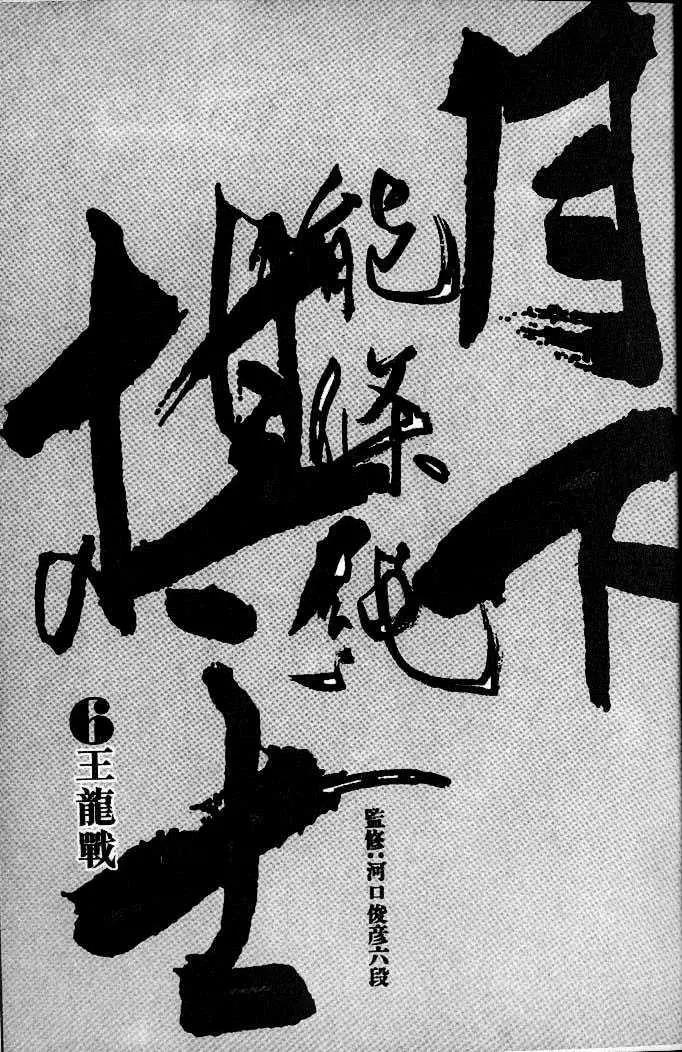 月下
棋士
能條純一
❻王龍戰
監修:河口俊彦六段